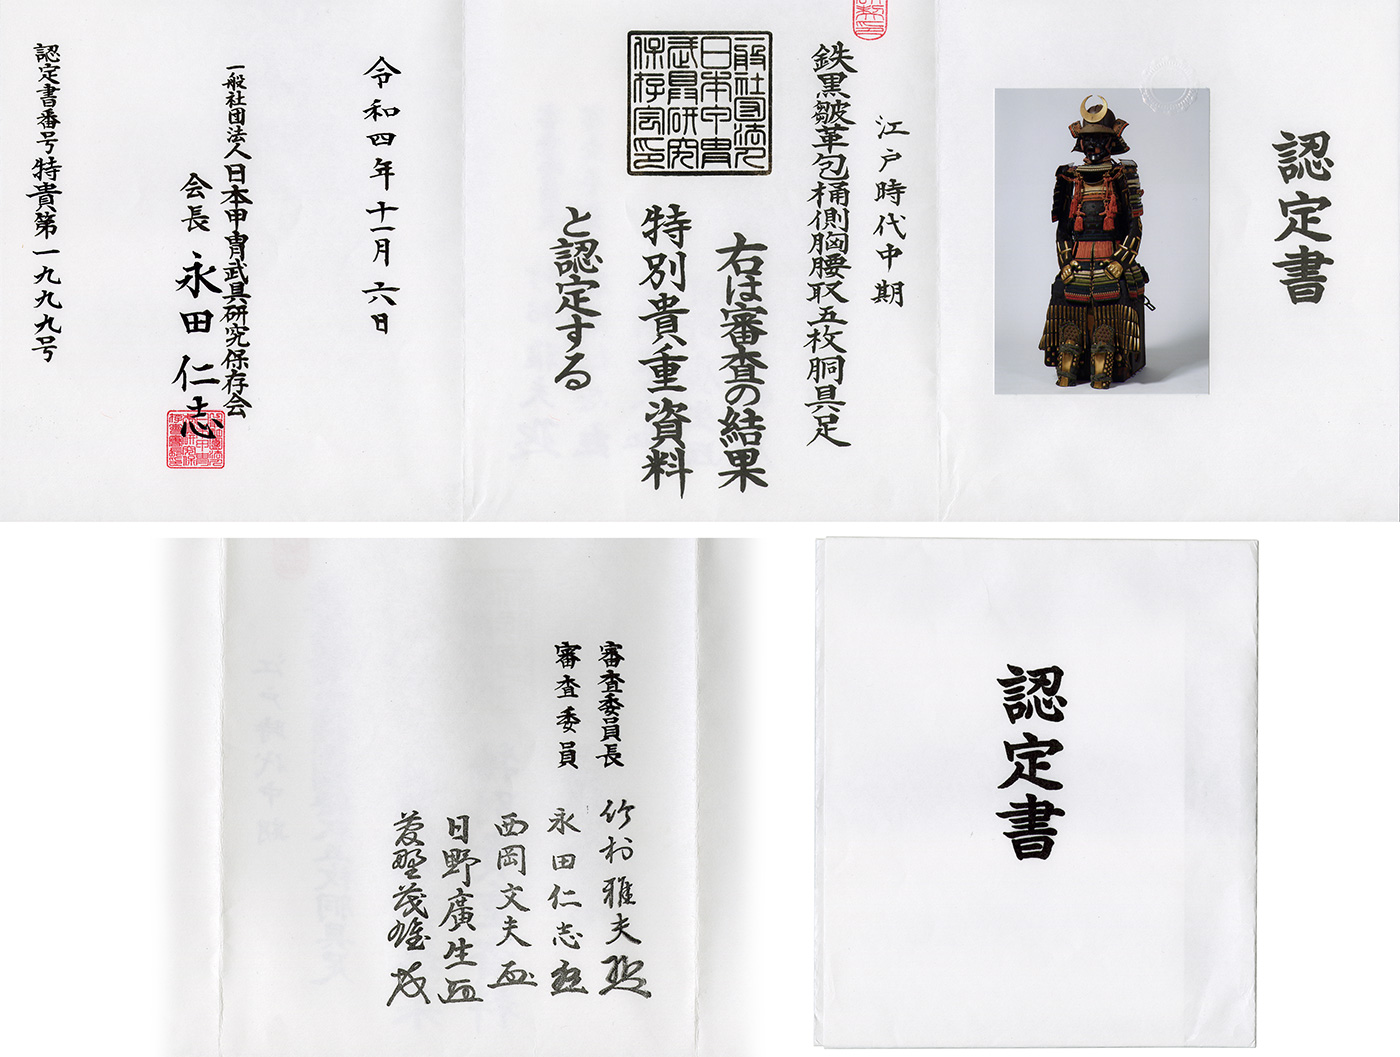 認定書
江戸時代中期
鉄黒皺革包桶側胸腰取五枚胴具足
右は審査の結果
特別貴重資料
と認定する
令和四年十一月六日
一般社団法人日本甲冑武具研究保存会
会長 永田仁志
認定書番号特貴第一九九九号
審査委員長 竹村雅夫
審査委員 永田仁志
西岡文夫
日野廣生
菱野茂雄
認定書